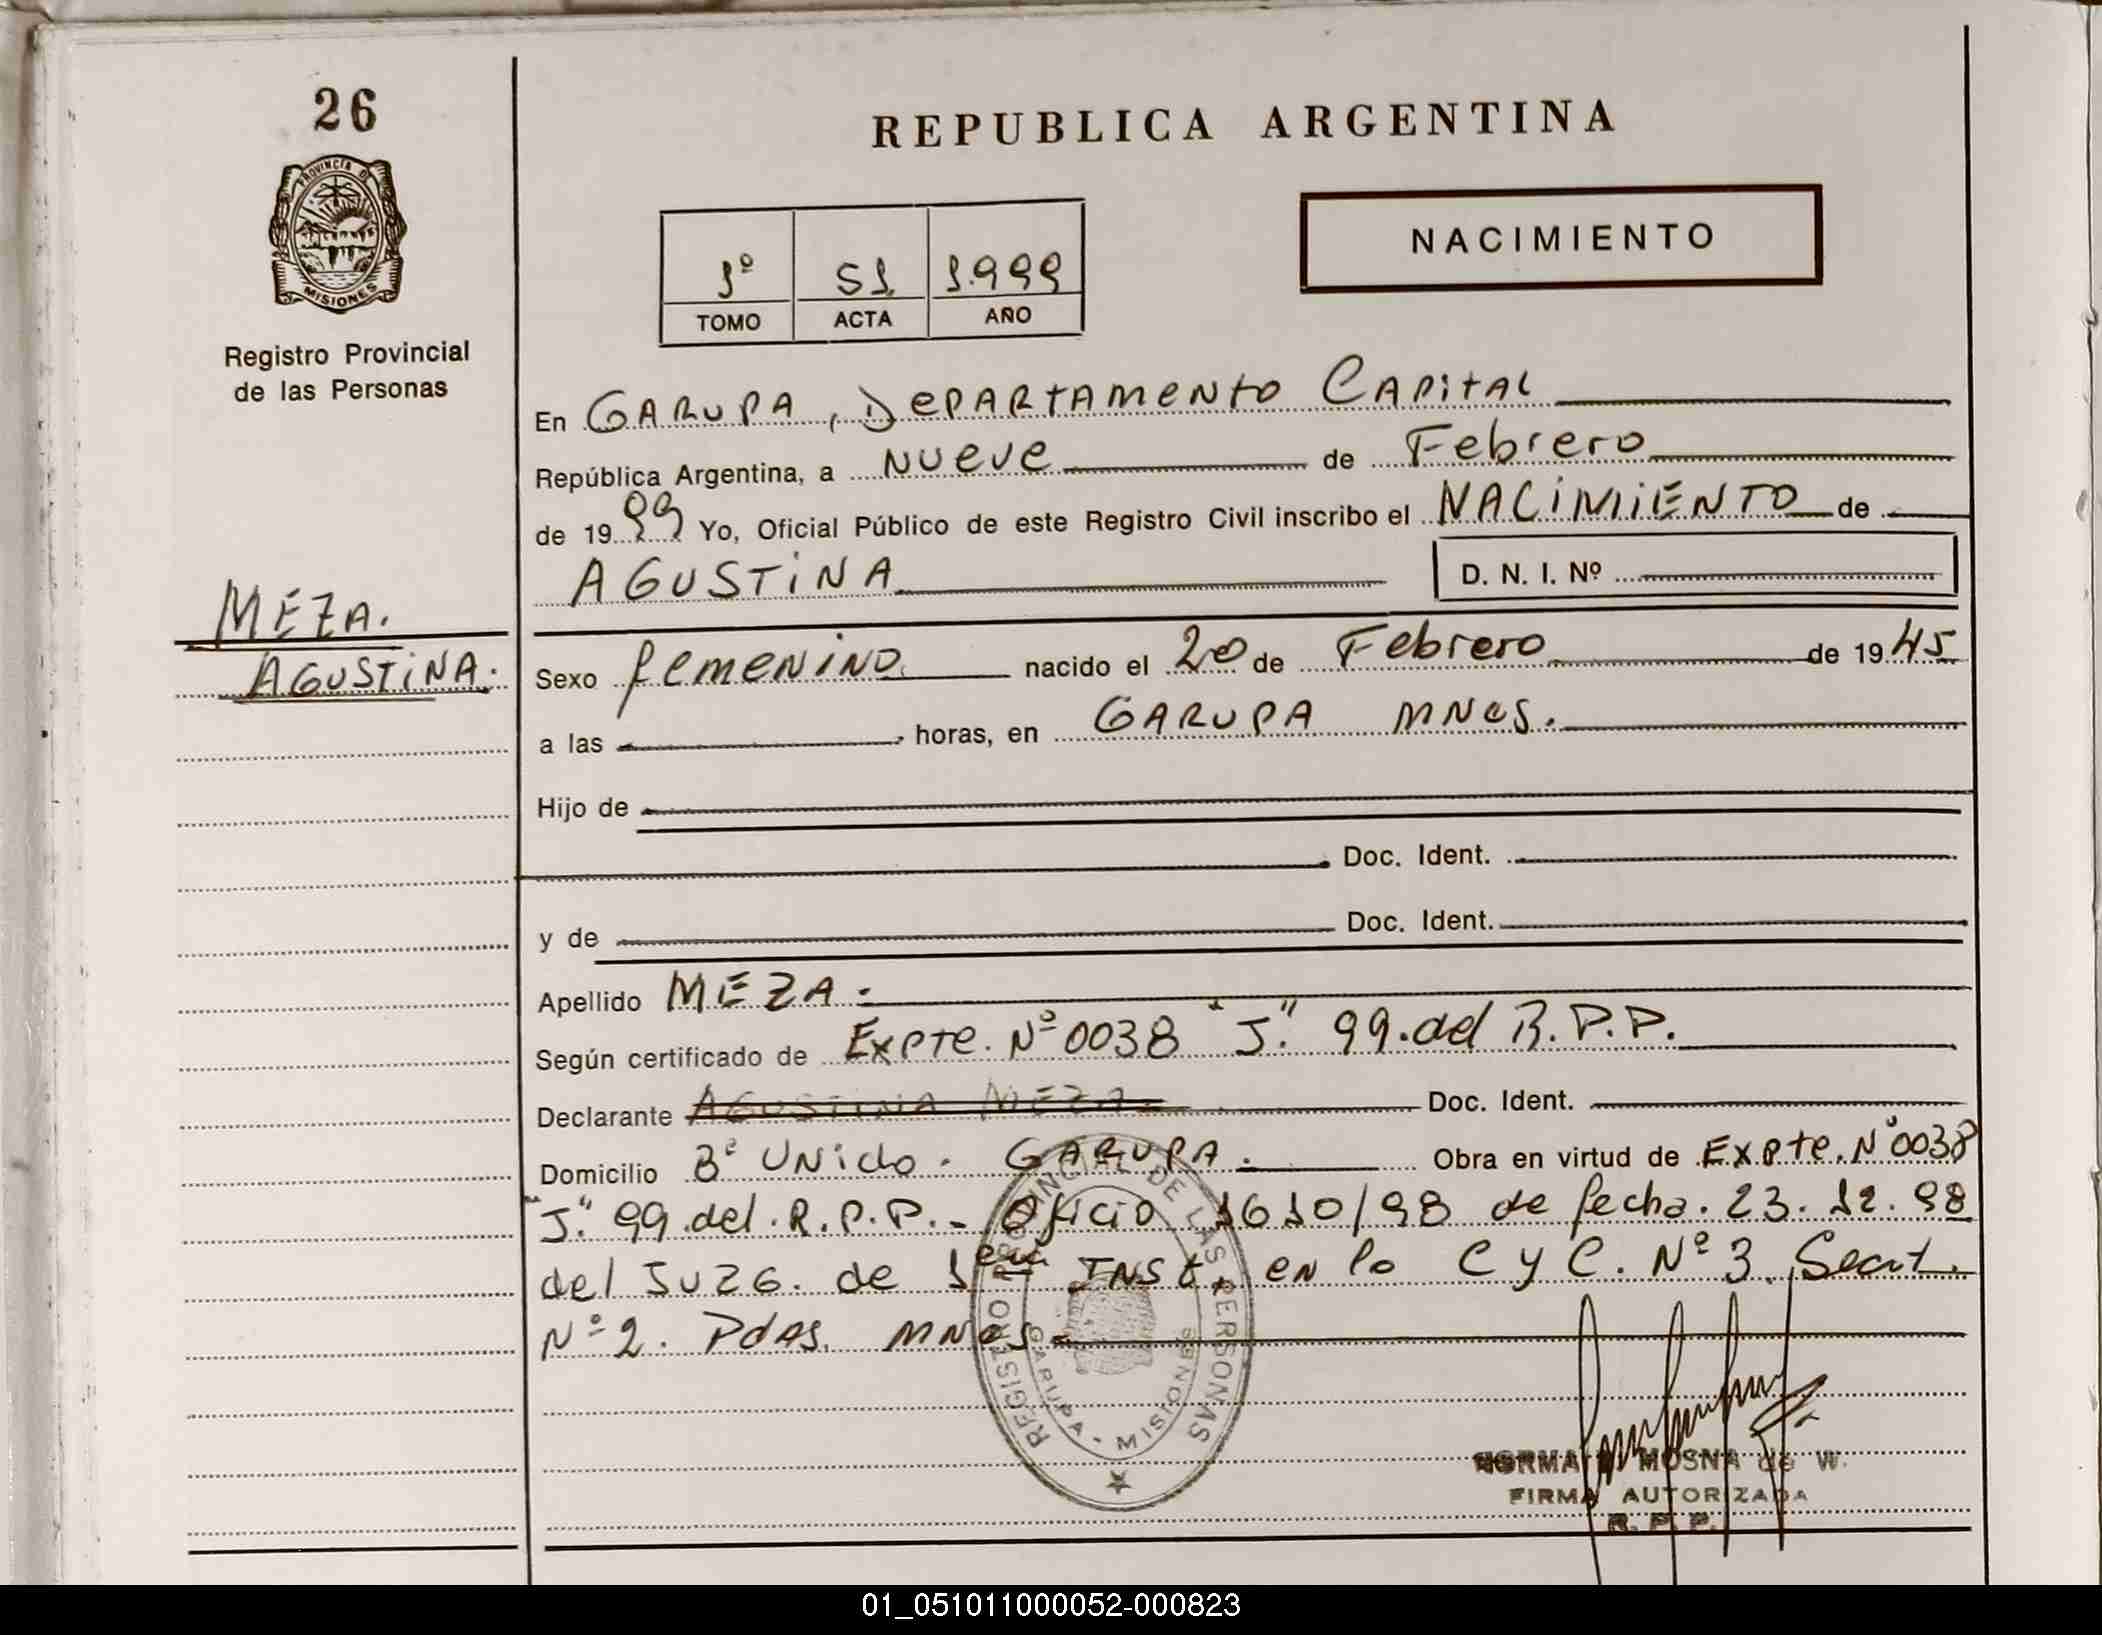 26
PROVINCIA DE
MISIONES
Registro Provincial
de las Personas
MEZA.
AGUSTINA.
REPUBLICA ARGENTINA
1º 51 1.999
TOMO ACTA AÑO
NACIMIENTO
En GARUPA, DEPARTAMENTO CAPITAL
República Argentina, a NUEVE de Febrero
de 1999 Yo, Oficial Público de este Registro Civil inscribo el NACIMIENTO de
AGUSTINA D. N. I. Nº
Sexo femenino nacido el 20 de Febrero de 1945
a las horas, en GARUPA MNES.
Hijo de
Doc. Ident.
y de Doc. Ident.
Apellido MEZA.
Según certificado de Expte. Nº 0038 "J." 99. del R.P.P.
Declarante AGUSTINA MEZA Doc. Ident.
Domicilio Bº UNido. GARUPA. Obra en virtud de Expte. Nº 0038
"J." 99 del. R.P.P. - Oficio 1610/98 de fecha. 23. 12. 98
del JUZG. de 1era INST. en lo C y C. Nº 3. Secret.
Nº 2. PdAS. MNES
REGISTRO PROVINCIAL DE LAS PERSONAS
GARUPA - MISIONES
NORMA MOSNA de W.
FIRMA AUTORIZADA
R. P. P.
01_051011000052-000823